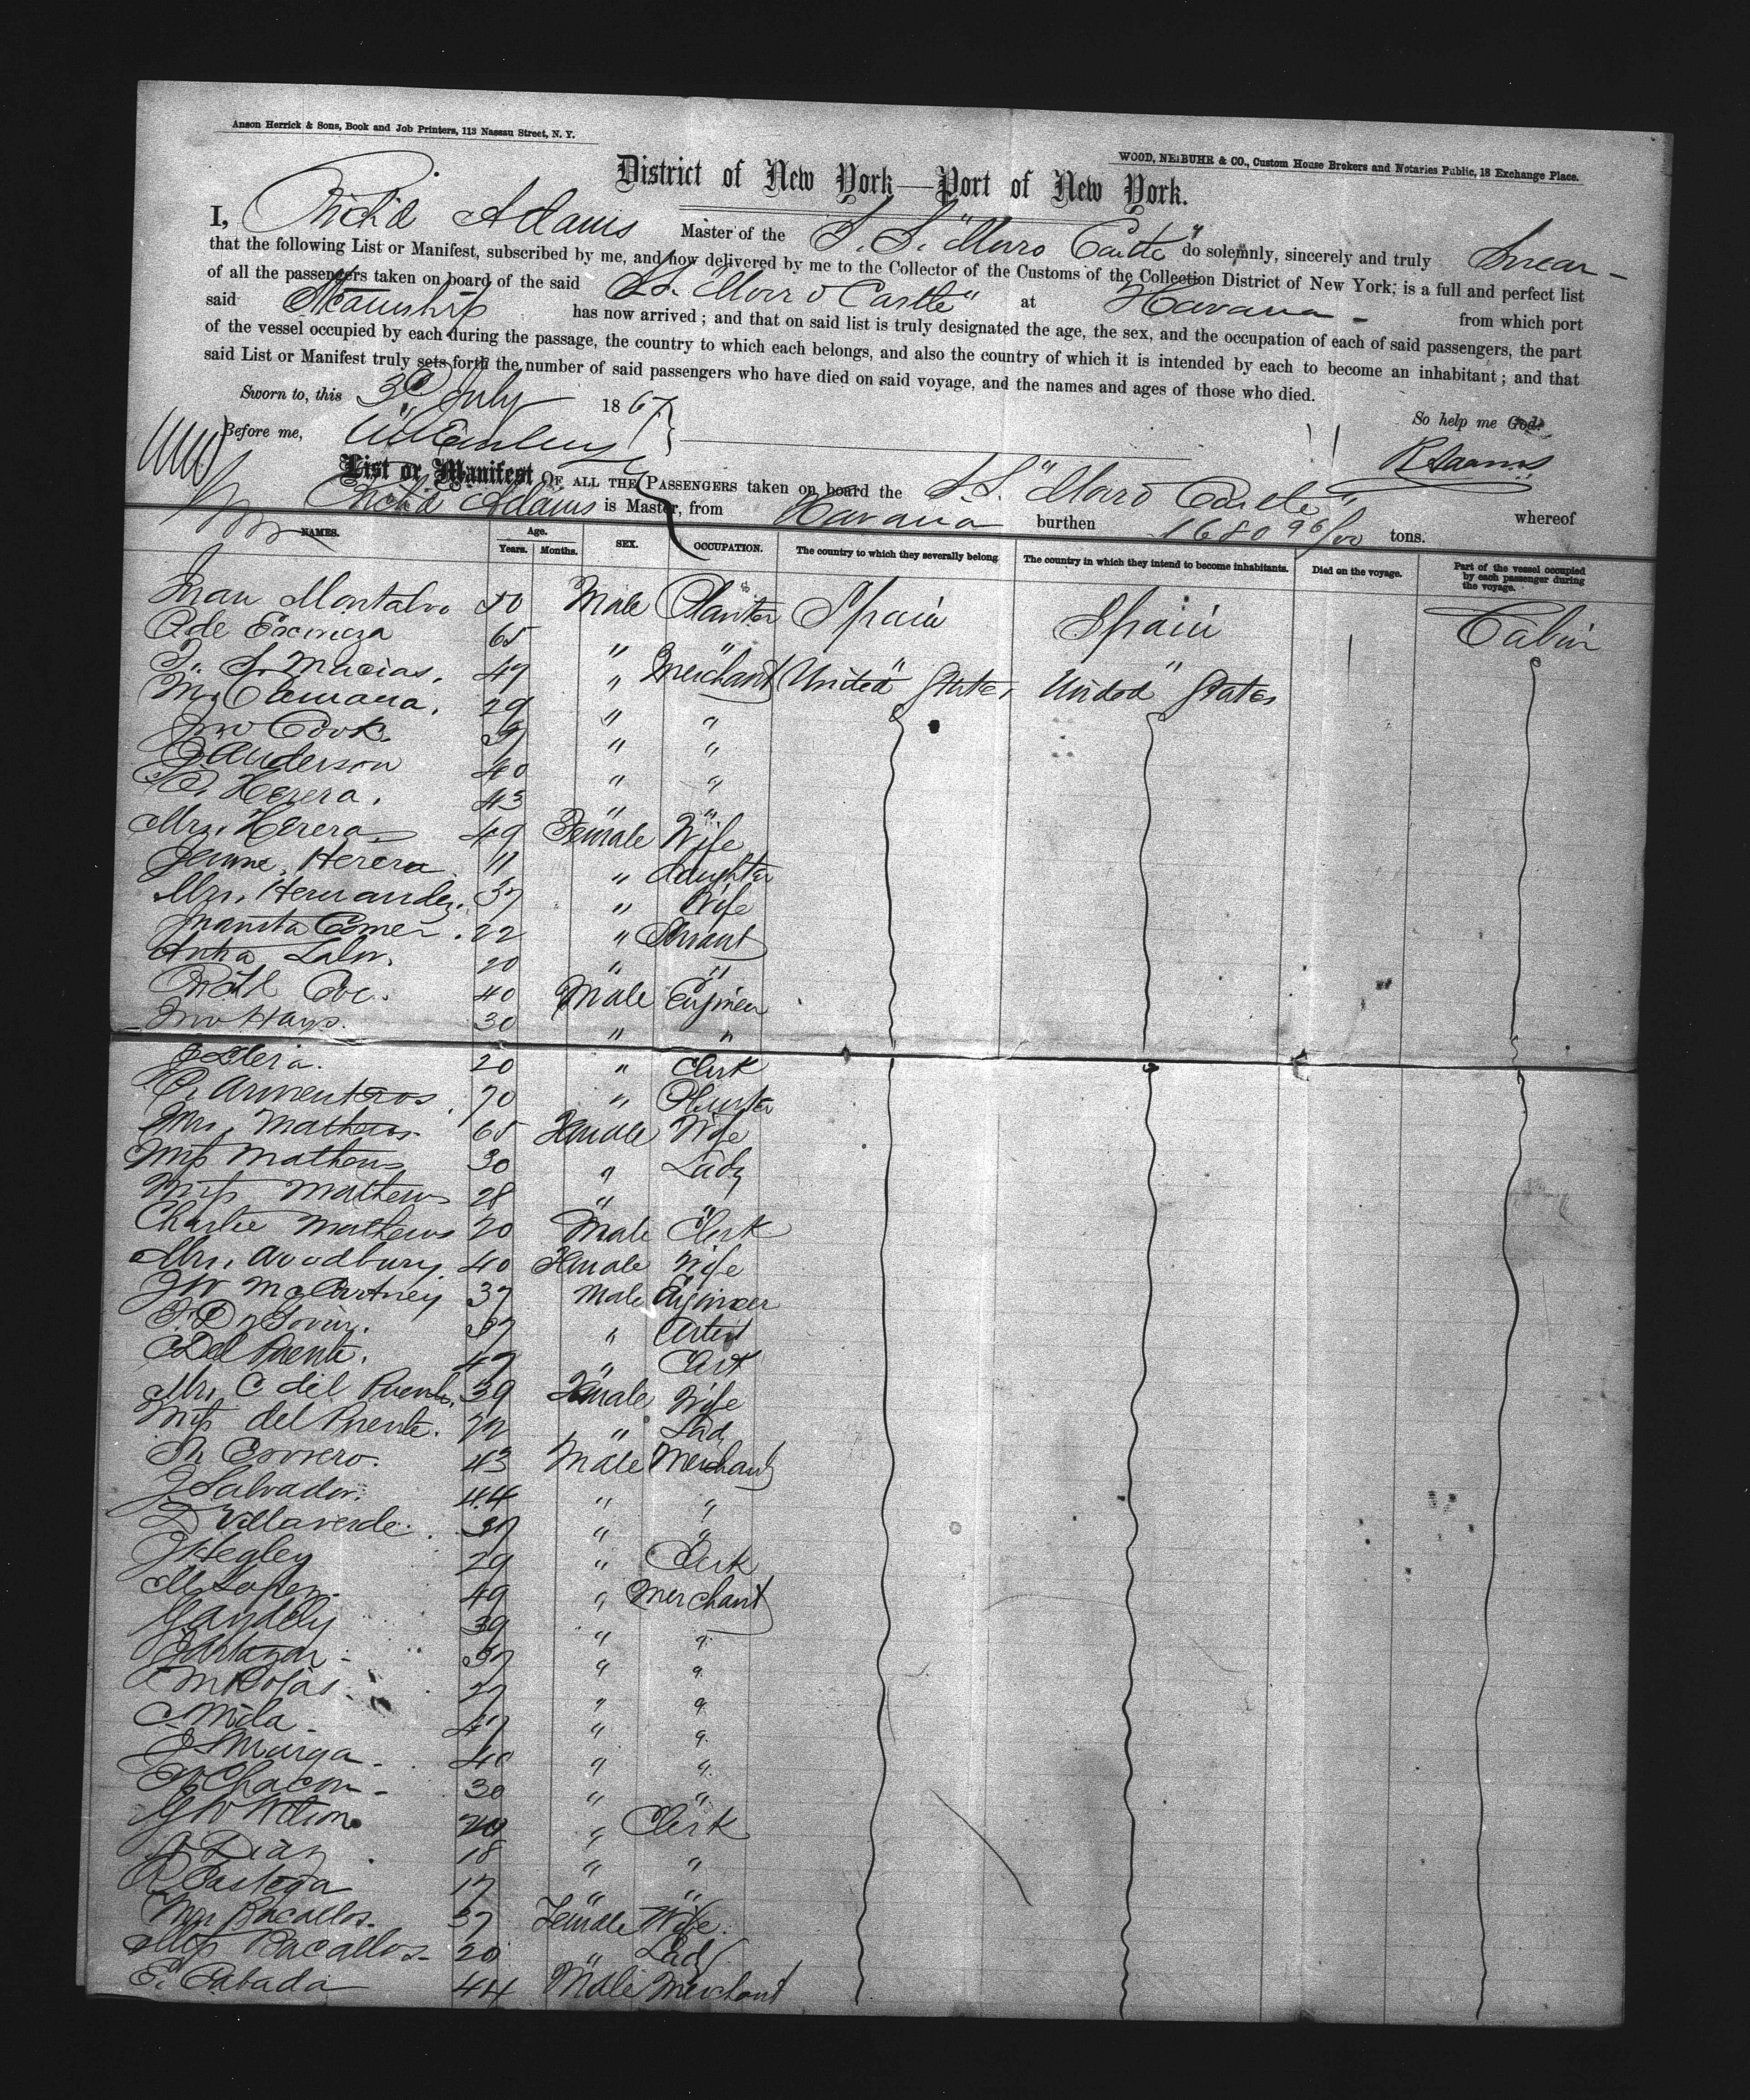 Anson Herrick & Sons, Book and Job Printers, 113 Nassau Street, N. Y.
WOOD, NEIBUHR & CO., Custom House Brokers and Notaries Public, 18 Exchange Place.
District of New York—Port of New York.
I, Rich'd Adams Master of the S. S. "Morro Castle" do solemnly, sincerely and truly Swear -
that the following List or Manifest, subscribed by me, and now delivered by me to the Collector of the Customs of the Collection District of New York; is a full and perfect list
of all the passengers taken on board of the said SS. "Morro Castle" at Havana - from which port
said Steamship has now arrived; and that on said list is truly designated the age, the sex, and the occupation of each of said passengers, the part
of the vessel occupied by each during the passage, the country to which each belongs, and also the country of which it is intended by each to become an inhabitant; and that
said List or Manifest truly sets forth the number of said passengers who have died on said voyage, and the names and ages of those who died.
Sworn to, this 3d July 1867 So help me God.
Before me, R Adams
List or Manifest OF ALL THE PASSENGERS taken on board the S.S. "Morro Castle" whereof
Rich'd Adams is Master, from Havana burthen 1680 96/100 tons.
NAMES. Age. Years. Months. SEX. OCCUPATION. The country to which they severally belong. The country in which they intend to become inhabitants. Died on the voyage. Part of the vessel occupied by each passenger during the voyage.
Juan Montalvo 50 Male Planter Spain Spain Cabin
P de 65 " " " "
Macias. 47 " Merchant United States United States
M. 29 " "
Jno Cook. 37 " "
Anderson 40 " "
Herera. 43 " "
Mrs. Herera 49 Female Wife
Jennie Herera 11 " daughter
Mrs. Hernandez. 37 " Wife
Juanita 22 " Servant
20 " "
Rich'd 40 Male Engineer
Jno Hays. 30 " "
20 " Clerk
Armenteros. 70 " Planter
Mrs. Mathews. 65 Female Wife
Miss Mathews 30 " Lady
Miss Mathews 28 " "
Charlie Mathews 20 Male Clerk
Mrs. Woodbury 40 Female Wife
JW McCartney 37 Male Engineer
37 " Artist
C Del Puente. 47 " Clerk
Mrs. C del Puente. 39 Female Wife
Miss del Puente. 22 " Lady
43 Male Merchant
J Salvador. 44 " "
Villaverde. 37 " "
J Hegley 29 " Clerk
M Lopez. 49 " Merchant
39 " "
37 " "
M Rojas. 27 " "
Mila 47 " "
40 " "
Chacon 30 " "
G W Wilson 20 " Clerk
Diaz 18 " "
17 " "
Mrs Bacallos. 37 Female Wife
Miss Bacallos 20 " Lady
E. Cabada 44 Male Merchant